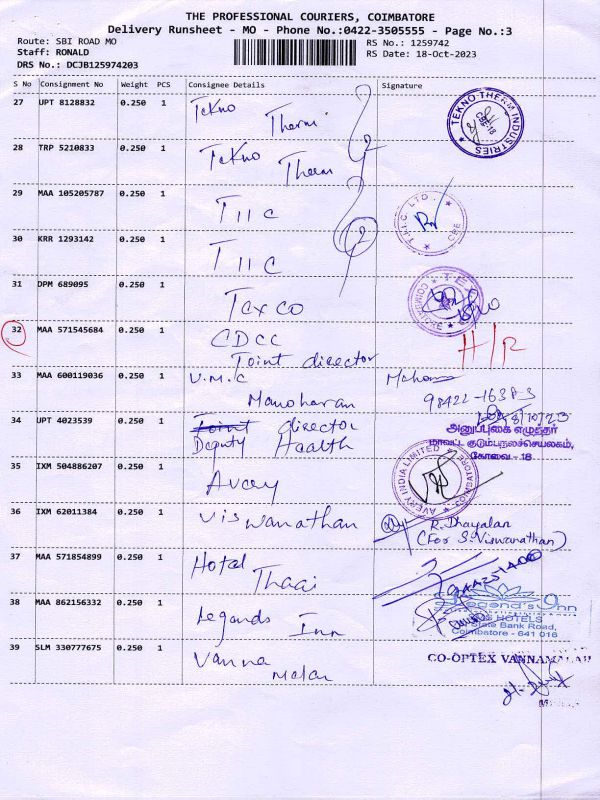 THE PROFESSIONAL COURIERS, COIMBATORE
Delivery Runsheet - MO - Phone No.:0422-3505555 - Page No.:3
Route: SBI ROAD MO
RS No.: 1259742
Staff: RONALD
RS Date: 18-Oct-2023
DRS No.: DCJB125974203
S No Consignment No Weight PCS Consignee Details Signature
27 UPT 8128832 0.250 1 Tekno Therm
TEKNO THERM INDUSTRIES
CBE-18
28 TRP 5210833 0.250 1 Tekno Therm
29 MAA 105205787 0.250 1 TIIC
T.I.I.C. LTD.
CBE
30 KRR 1293142 0.250 1 TIIC
31 DPM 689095 0.250 1 Texco
32 MAA 571545684 0.250 1 CDCC
Joint director
H/R
33 MAA 600119036 0.250 1 V.M.C
Manoharan
34 UPT 4023539 0.250 1 Joint director
Deputy Health
அனுப்புகை எழுத்தர்
மாவட்ட குடும்பநலச்செயலகம்,
கோவை - 18
35 IXM 504886207 0.250 1 Avery
AVERY INDIA LIMITED
COIMBATORE
36 IXM 62011384 0.250 1 Viswanathan
R. Dhayalan
(For S. Viswanathan)
37 MAA 571854899 0.250 1 Hotel Thaai
38 MAA 862156332 0.250 1 Legends Inn
Legend's Inn
HOTELS
State Bank Road,
Coimbatore - 641 018
39 SLM 330777675 0.250 1 Vanna Malar
CO-OPTEX VANNAMALAR